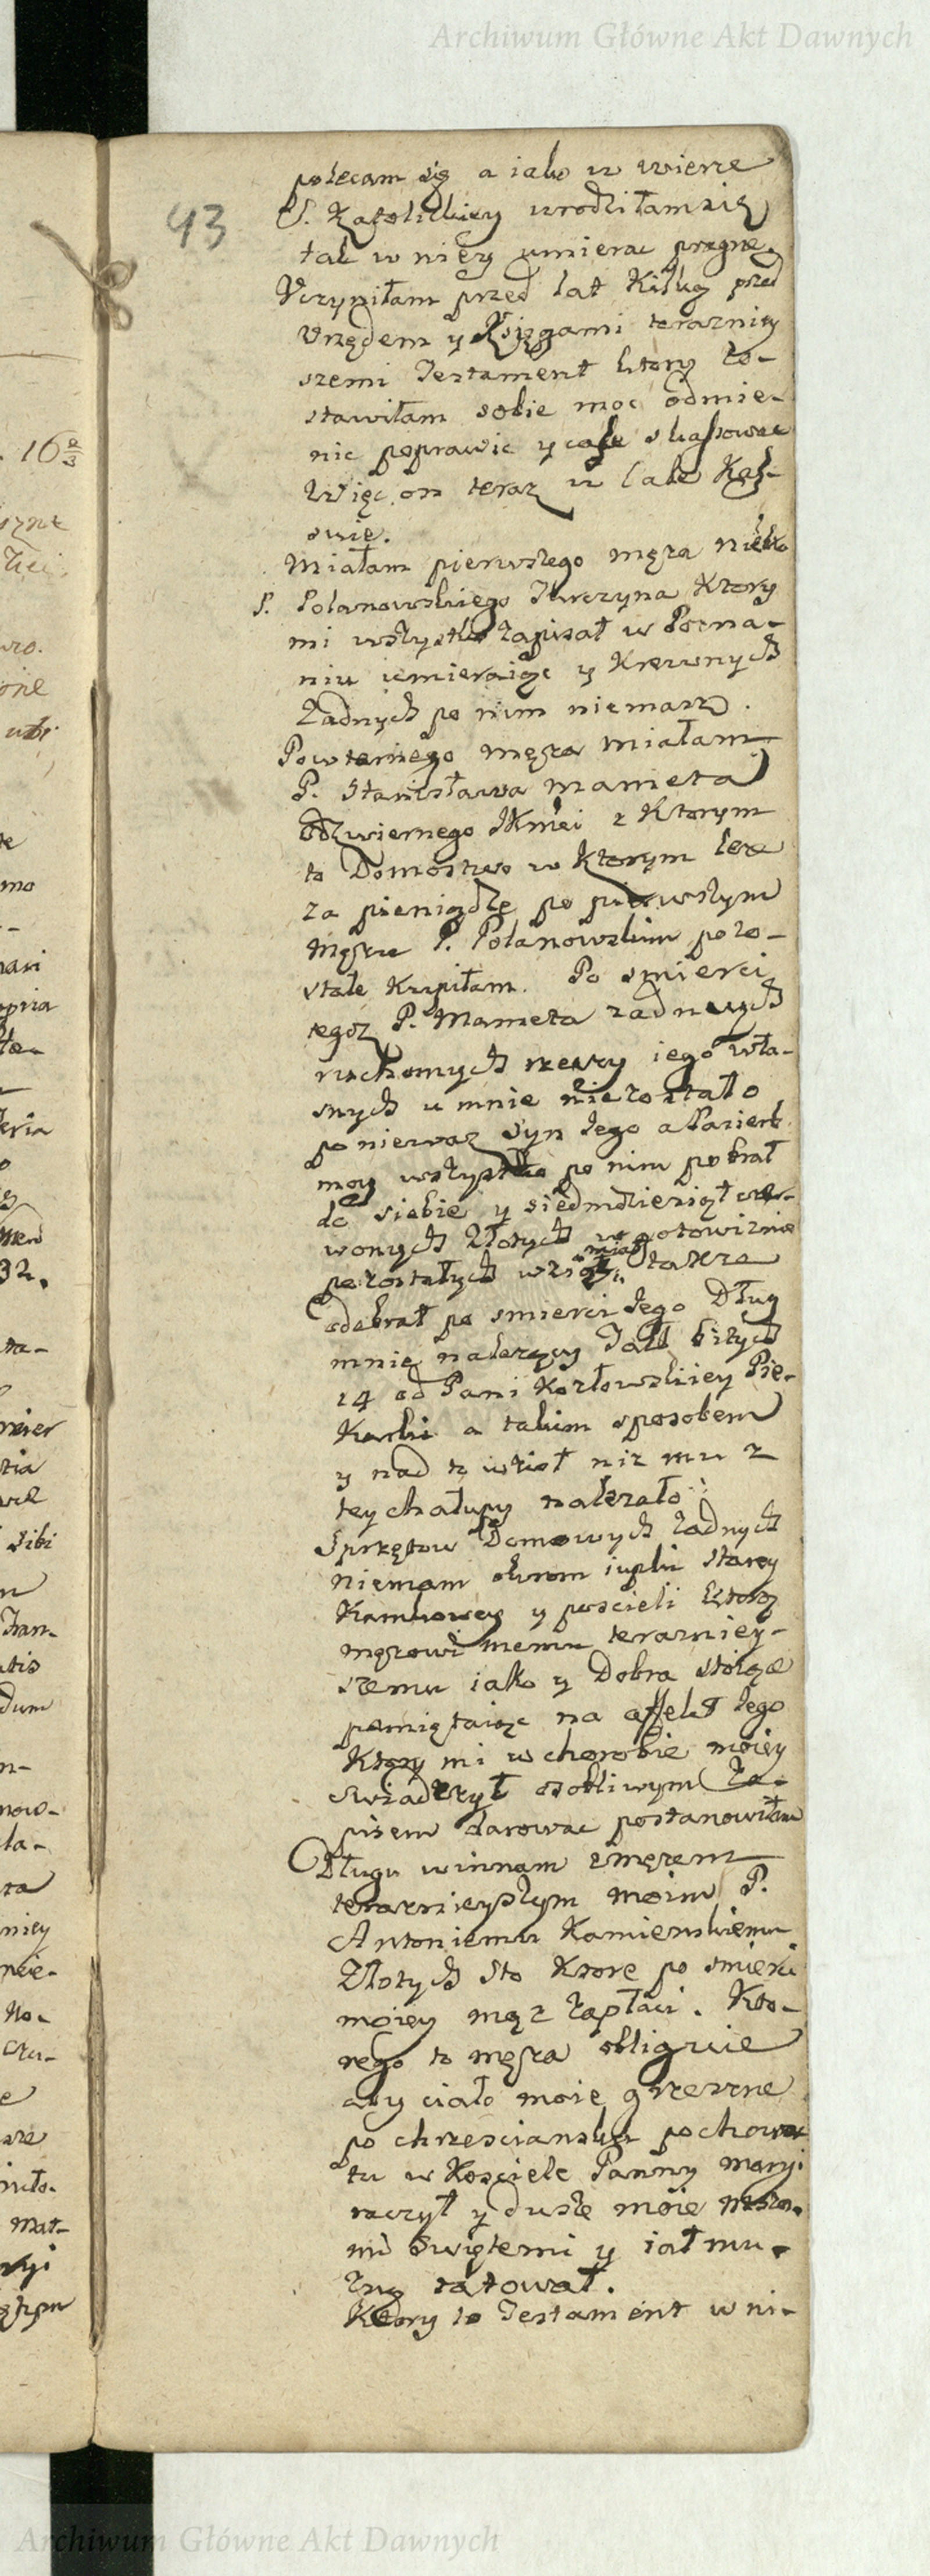 Archiwum Główne Akt Dawnych
43
polecam się a iako w wierze
S. Katolickiey urodziłam się
tak w niey umierac pragnę.
Uczyniłam przed lat kilką przed
Urzędem y Księgami terazniey
szemi Testament ktory zo-
stawiłam sobie moc odmie-
nic poprawic y całe skassowac
Więc on teraz w cale Kas-
suię.
Miałam pierwszego męza
P. Polanowskiego Ktory
mi wszystko zapisał w Pozna-
niu umieraiąc y Krewnych
Żadnych po nim niemasz.
Powtornego męza miałam
P. Stanisława Manieta
Odzwiernego JKmci z Ktorym
to Domostwo w Ktorym leze
za pieniądze po pierwszym
Męzu P. Polanowskim pozo-
stałe Kupiłam. Po smierci
tegoz P. Manieta zadnych
ruchomych rzeczy iego wła-
snych u mnie niezostało
poniewaz Syn Jego a Pasierb
moy wszystko po nim pobrał
do siebie y siedmdziesiąt czer-
wonych Złotych w gotowiznie
pozostałych wziął takze
odebrał po smierci Jego Dług
mnie nalezący Tall. bitych
14 od Pani Kozłowskiey Pie-
Karki a takim sposobem
y nad to wzioł niz mu z
tey chałupy nalezało
Sprzętow Domowych Żadnych
niemam okrom iupki starey
Kamkowey y poscieli Ktorą
męzowi memu terazniey-
szemu iako y Dobra stoiące
pamiętaiąc na affekt Jego
Ktory mi w chorobie moiey
swiadczył osobliwym Za-
pisem darowac postanowiłam
Długu winnam z męzem
teraznieyszym moim P.
Antoniemu Kamienskiemu
Złotych Sto Ktore po smierci
moiey mąz zapłaci. Kto-
rego to męza obliguie
aby ciało moie grzeszne
po chrzesciansku pochowac
tu w Kosciele Panny Maryi
raczył y dusze moie Msza-
mi Swiętemi y iałmu-
zną ratował.
Ktory to Testament w ni-
Archiwum Główne Akt Dawnych